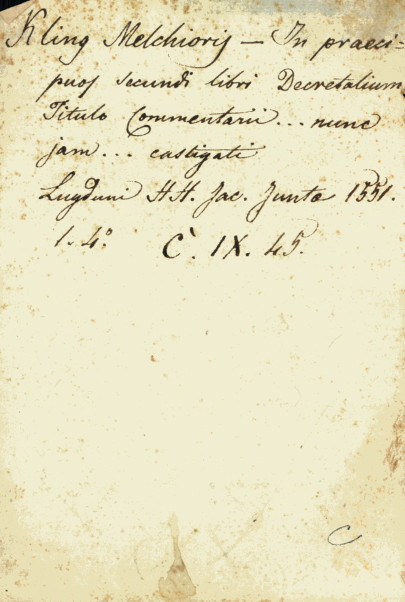 Kling Melchioris — In praeci=
puos secundi libri Decretalium
Titulo Commentarii... nunc
jam... castigati
Lugduni HH. Jac. Juntae 1551.
1. 4.° C. IX. 45.
C